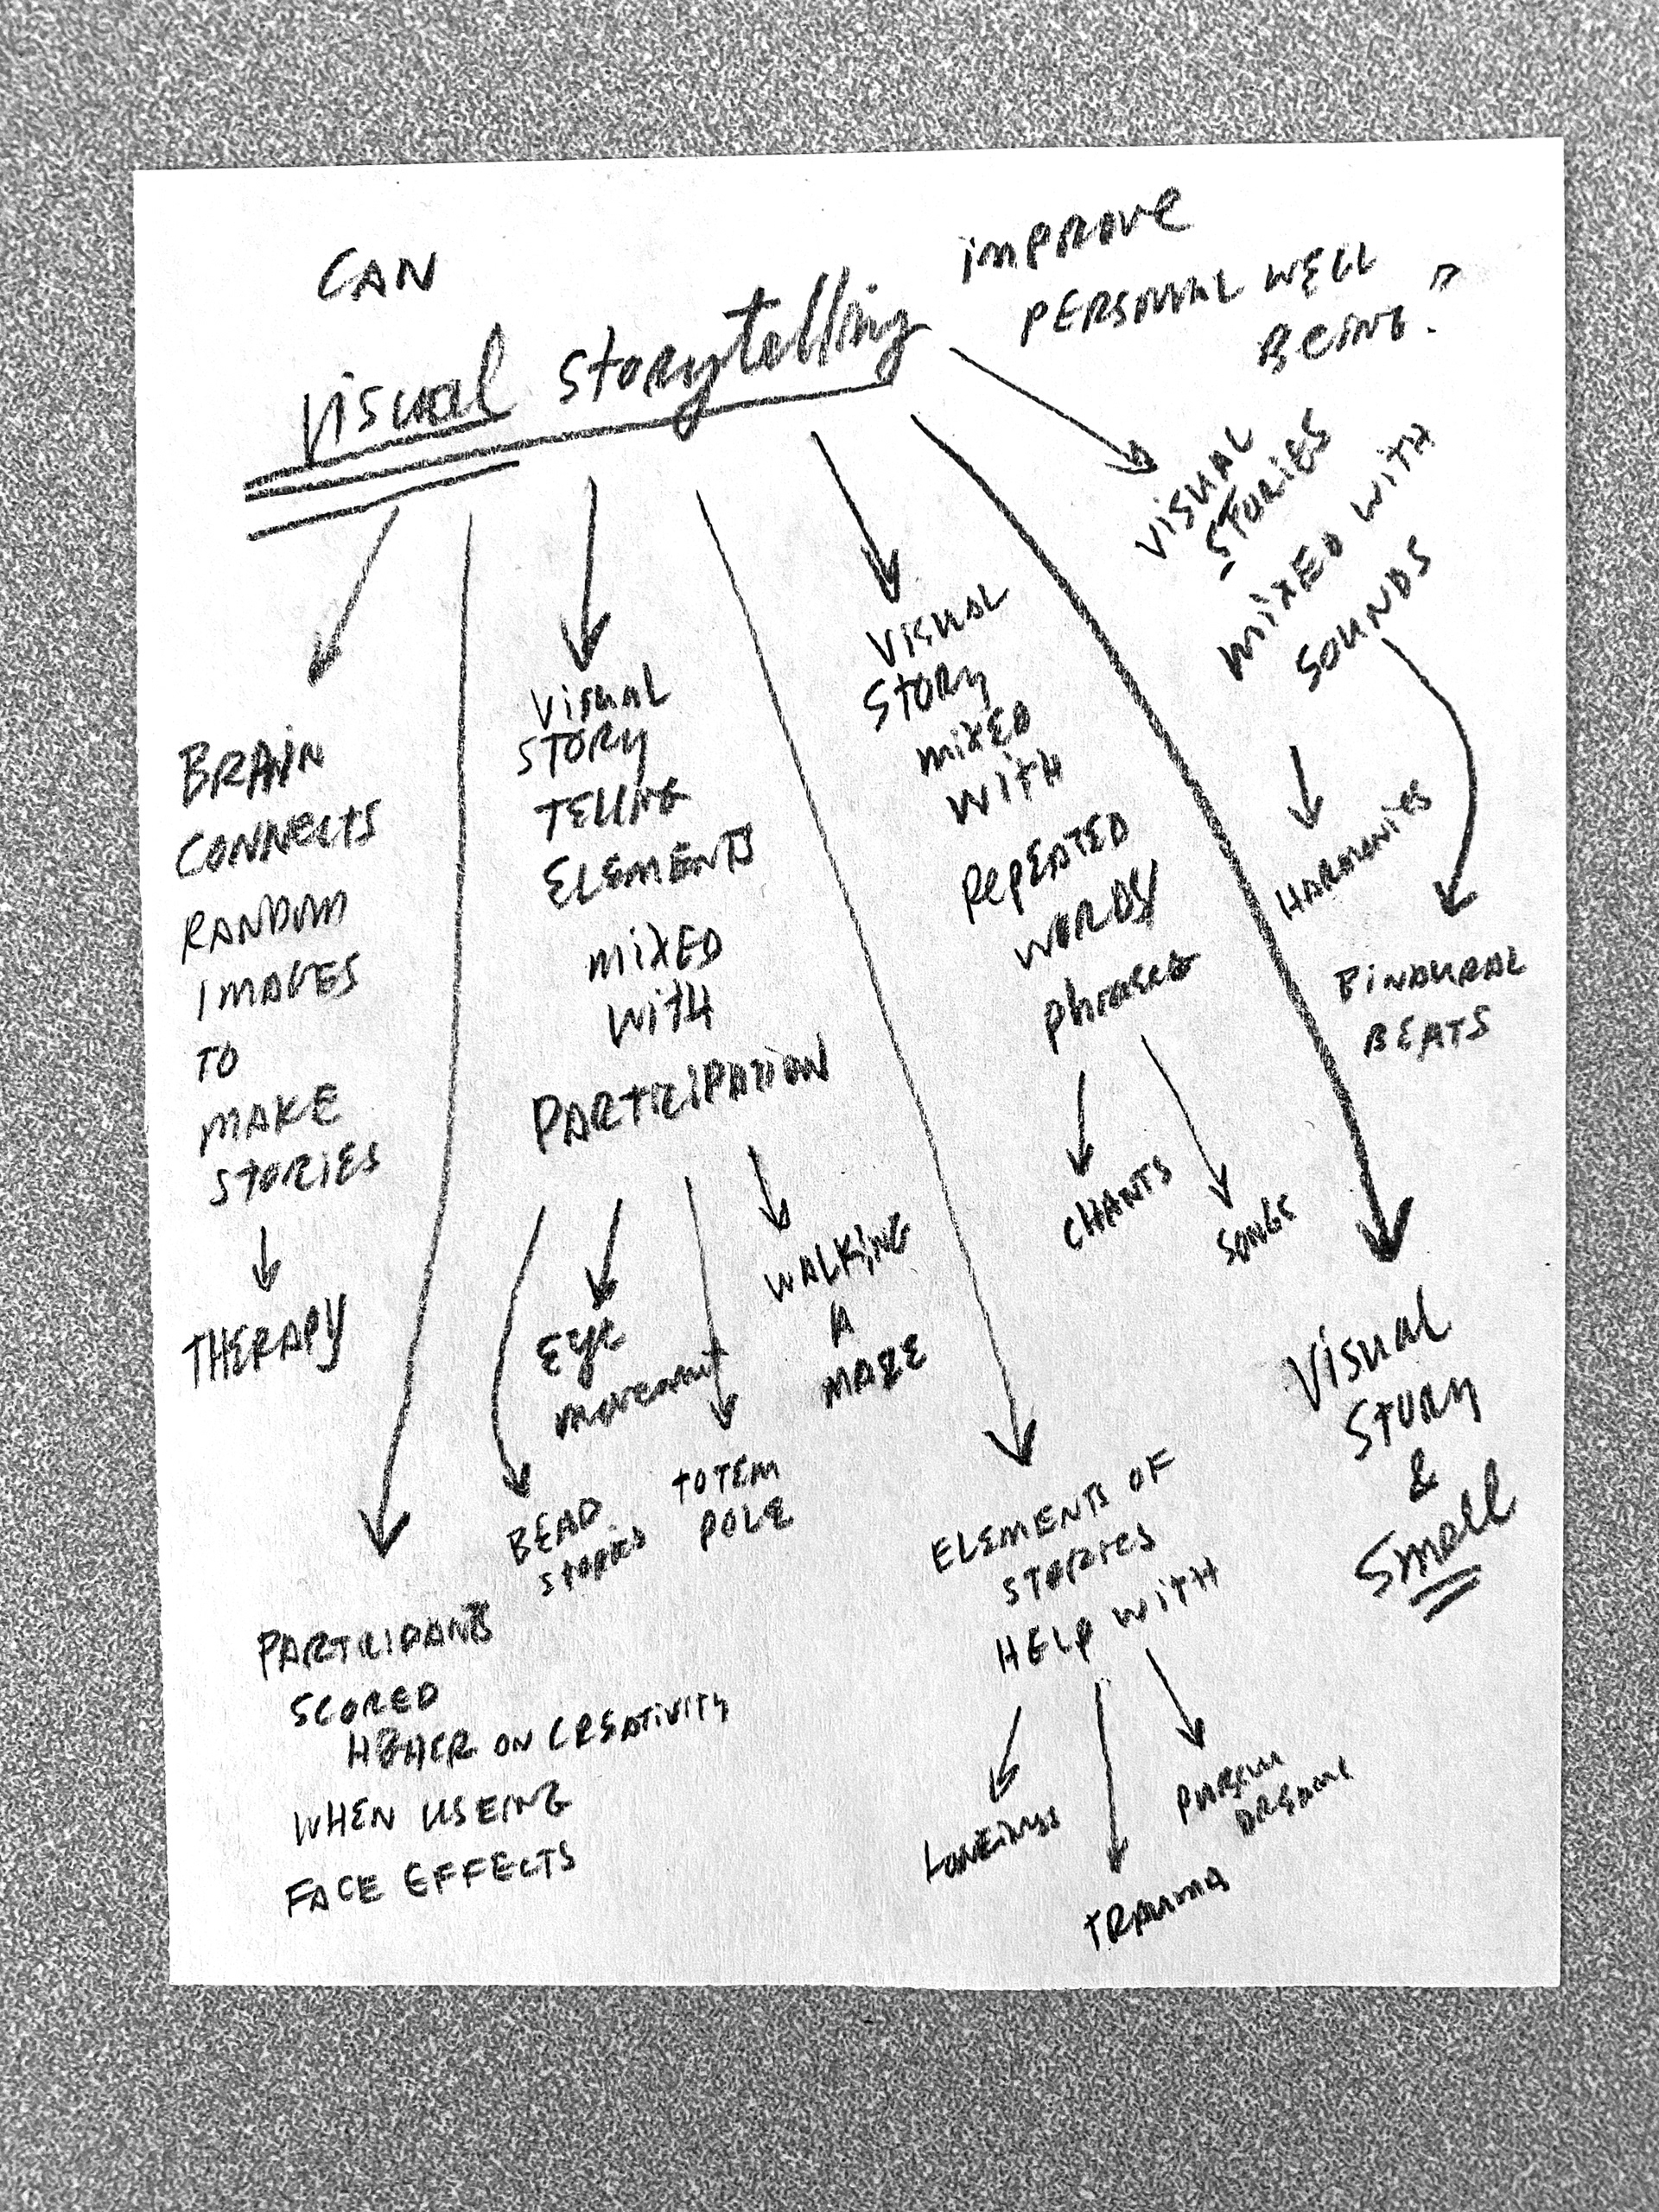 CAN
Visual Storytelling
improve
PERSONAL WELL
BEING?
BRAIN
CONNECTS
RANDOM
IMAGES
TO
MAKE
STORIES
THERAPY
PARTICIPANTS
SCORED
HIGHER ON CREATIVITY
WHEN USEING
FACE EFFECTS
VISUAL
STORY
TELLING
ELEMENTS
MIXED
WITH
PARTICIPATION
BEAD
STORIES
EYE
movement
TOTEM
POLE
WALKING
A
MAZE
ELEMENTS OF
STORIES
HELP WITH
TRAUMA
VISUAL
STORY
MIXED
WITH
REPEATED
WORDS/
phrases
CHANTS
SONGS
Visual
STORY
&
Smell
VISUAL
STORIES
MIXED WITH
SOUNDS
HARMONIES
BINAURAL
BEATS